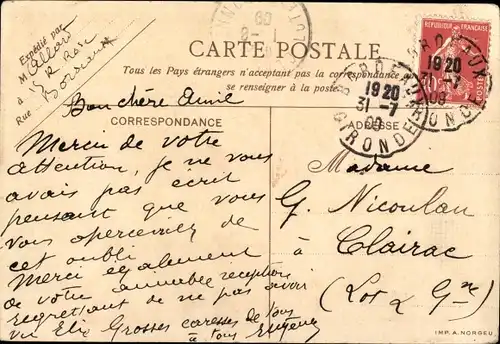 CARTE POSTALE
Tous les Pays étrangers n'acceptant pas la correspondance
se renseigner à la poste.
Expédié par
M Allard
à
Rue
Bordeaux
RÉPUBLIQUE FRANÇAISE
POSTES
BORDEAUX
1920
31-7
09
GIRONDE
BORDEAUX
1920
31-7
09
GIRONDE
Bien chère Amie
CORRESPONDANCE
Merci de votre
attention, je ne vous
avais pas écrit
pensant que vous
vous aperceviez de
cet oubli
Merci également
de votre aimable réception
regrettant de ne pas avoir
vu Elie Grosses caresses de tous
à tous Eugénie
ADRESSE
Madame
G. Nicoulau
à Clairac
(Lot & Gne)
IMP. A. NORGEU